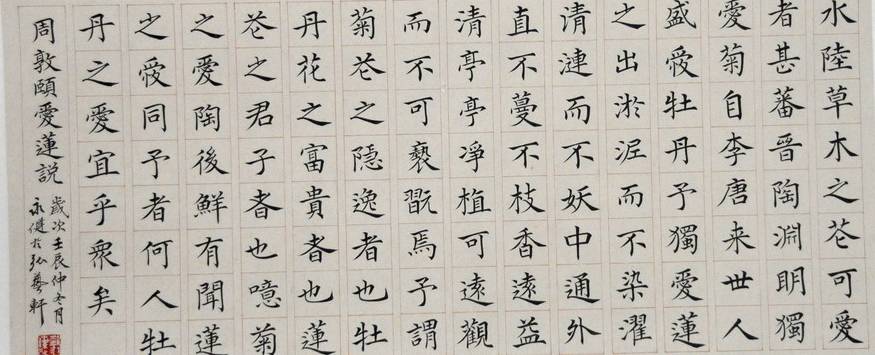 水陸草木之苍可愛
者甚蕃晉陶淵明獨
愛菊自李唐来世人
盛愛牡丹予獨愛蓮
之出淤泥而不染濯
清漣而不妖中通外
直不蔓不枝香遠益
清亭亭凈植可遠觀
而不可褻翫焉予謂
菊苍之隱逸者也牡
丹花之富貴者也蓮
苍之君子者也噫菊
之愛陶後鮮有聞蓮
之愛同予者何人牡
丹之愛宜乎衆矣
周敦頤愛蓮説
歲次壬辰仲冬月
永健於弘藝軒